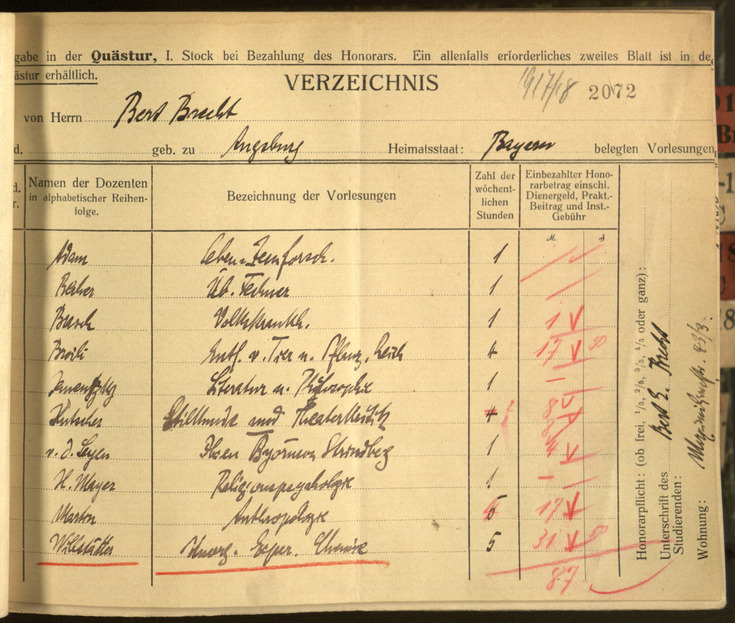 gabe in der Quästur, I. Stock bei Bezahlung des Honorars. Ein allenfalls erforderliches zweites Blatt ist in de
ästur erhältlich.
VERZEICHNIS
1917/18 2072
von Herrn Bert Brecht
d. geb. zu Augsburg Heimatsstaat: Bayern belegten Vorlesungen
Namen der Dozenten in alphabetischer Reihenfolge. Bezeichnung der Vorlesungen Zahl der wöchentlichen Stunden Einbezahlter Honorarbetrag einschl. Dienergeld, Prakt.-Beitrag und Inst.-Gebühr
M.
Adam 1
Üb. Fechner 1
1 1
Broili Entf. v. Tier u. Pflanz. reich 4 17
Literatur u. Philosophie 1 —
Kutscher Stilkunde und Theaterkritik 8
v. d. Leyen Ibsen Björnson Strindberg 1 4
H. Mayer Religionspsychologie 1 —
Martin Anthropologie 17
Willstätter Unorg. Exper. Chemie 5 31
87
Honorarpflicht: (ob frei, 1/5, 2/5, 3/5, 4/5 oder ganz):
Unterschrift des Studierenden: Brecht
Wohnung: